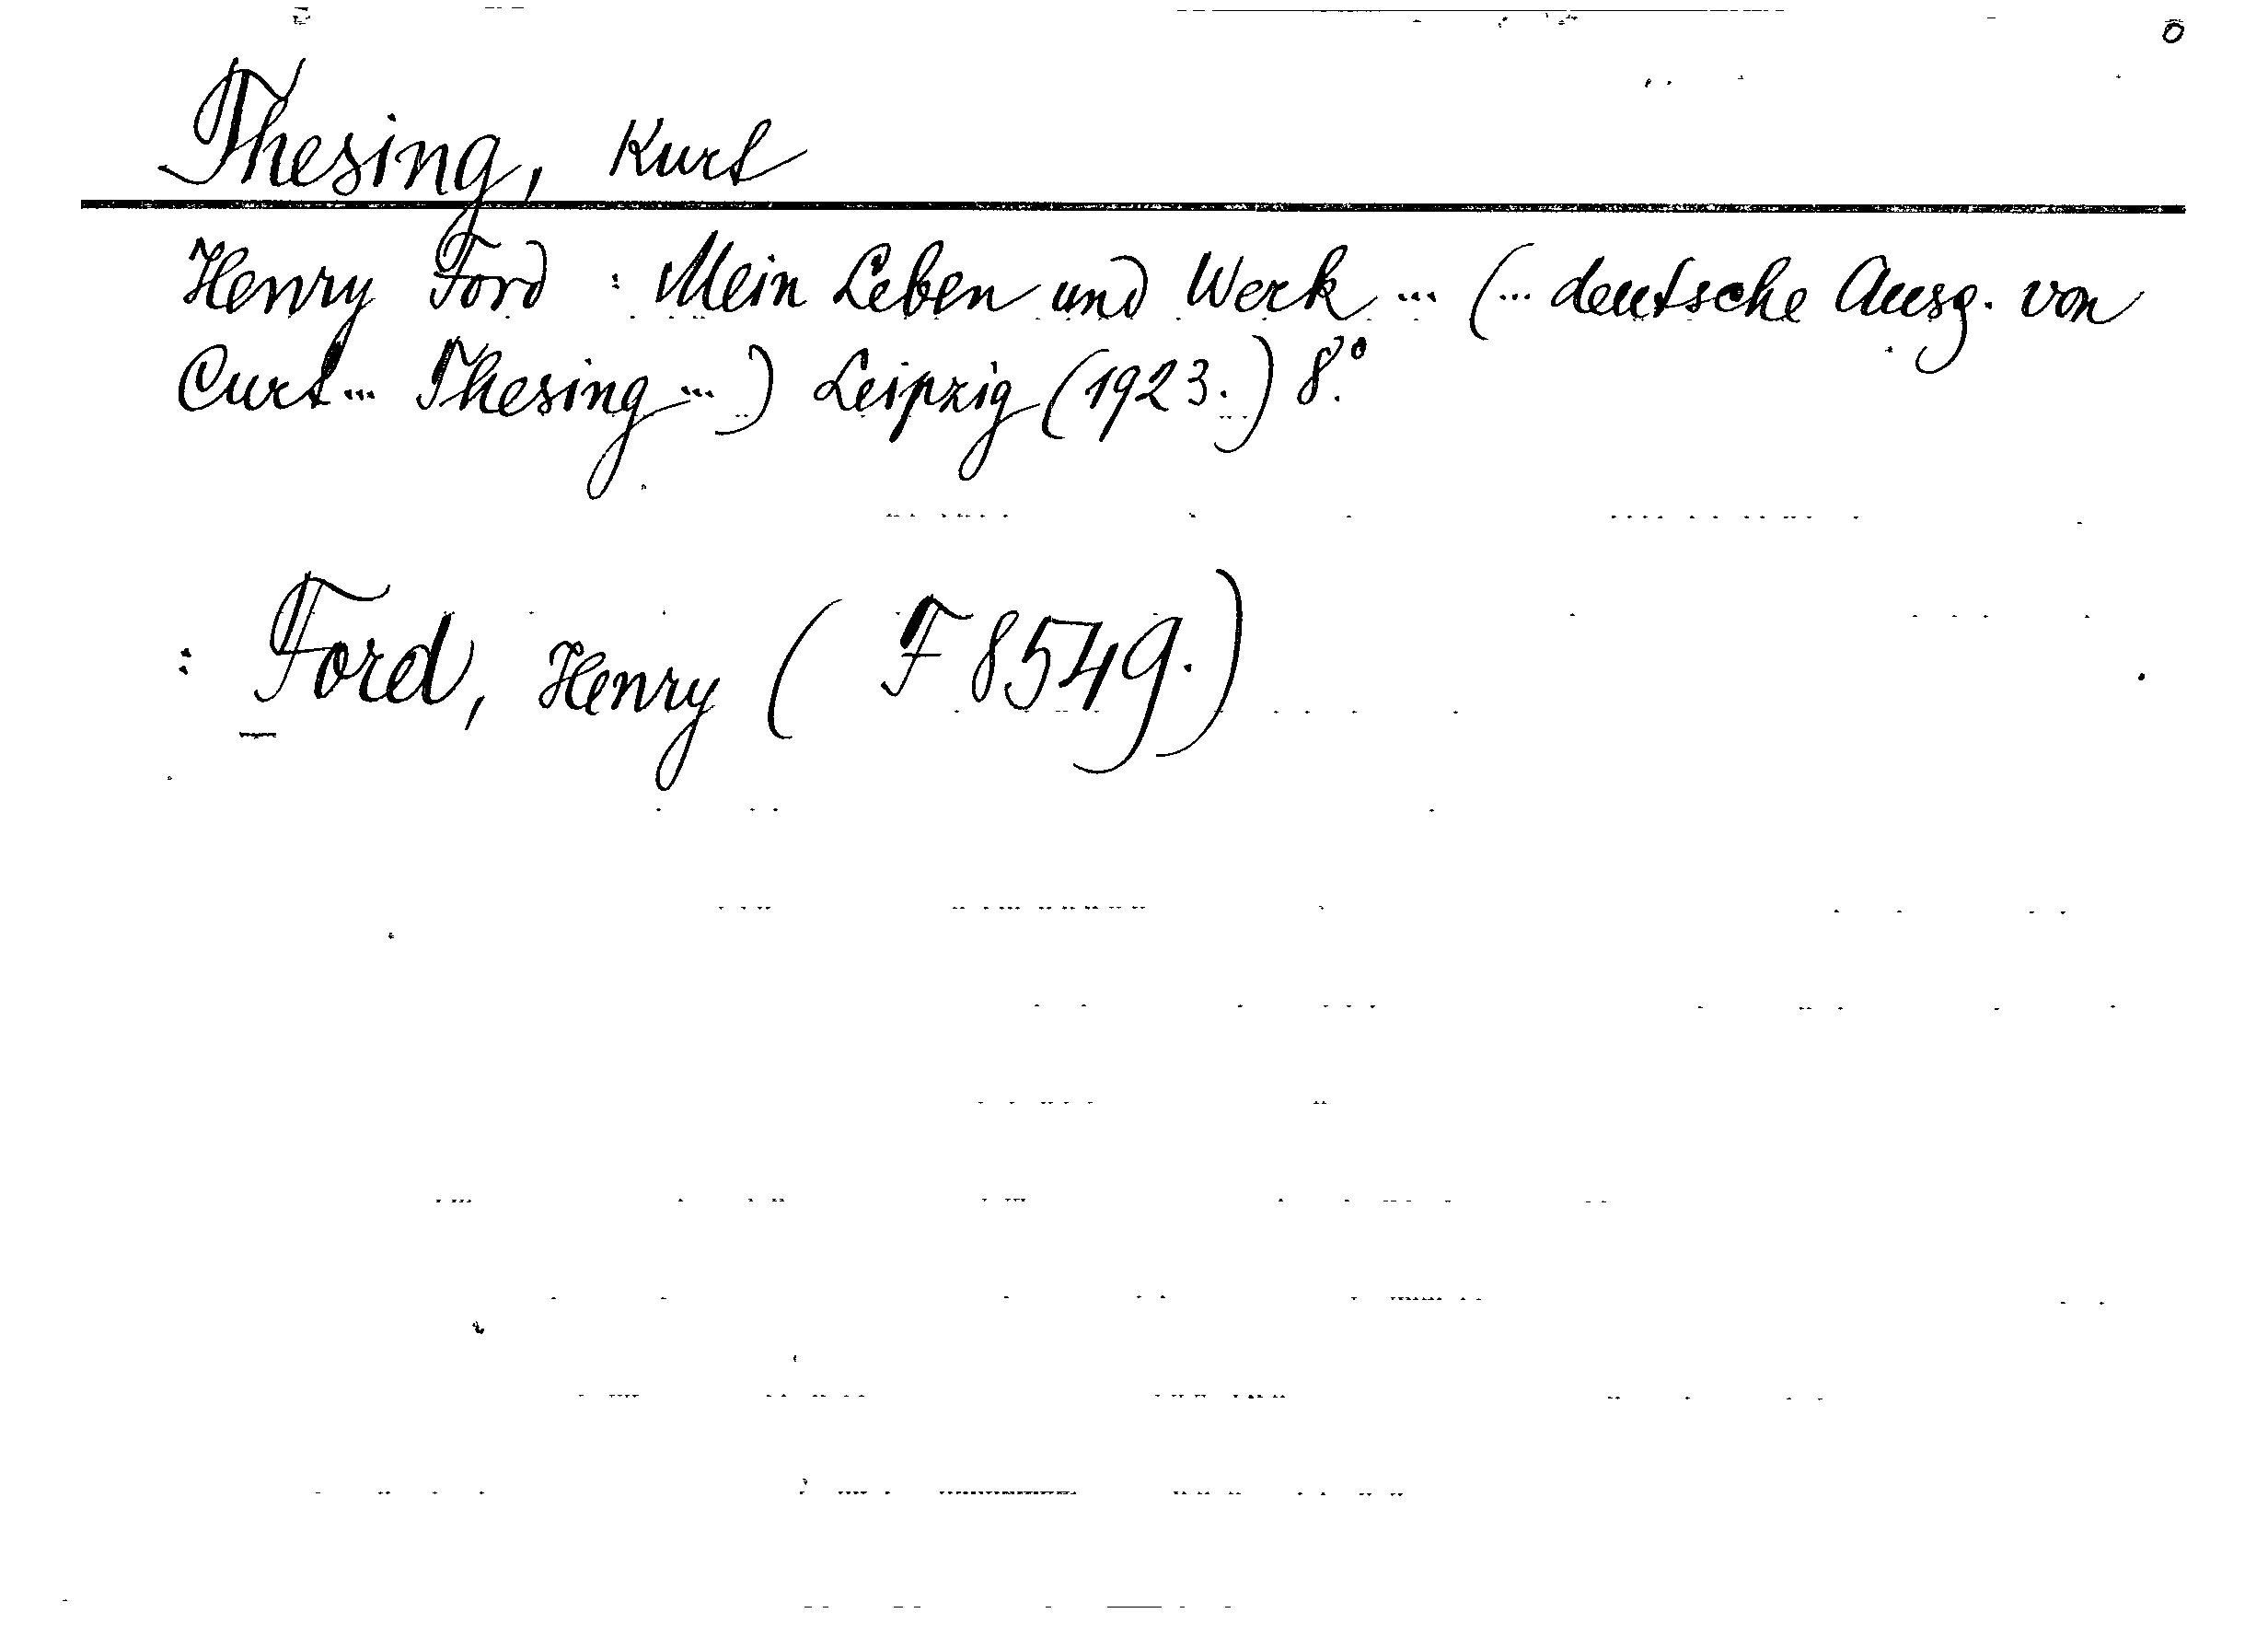 Thesing, Kurt
Henry Ford : Mein Leben und Werk ... (... deutsche Ausg. von
Curt ... Thesing ...) Leipzig (1923.) 8°.
: Ford, Henry ( F 8549.)